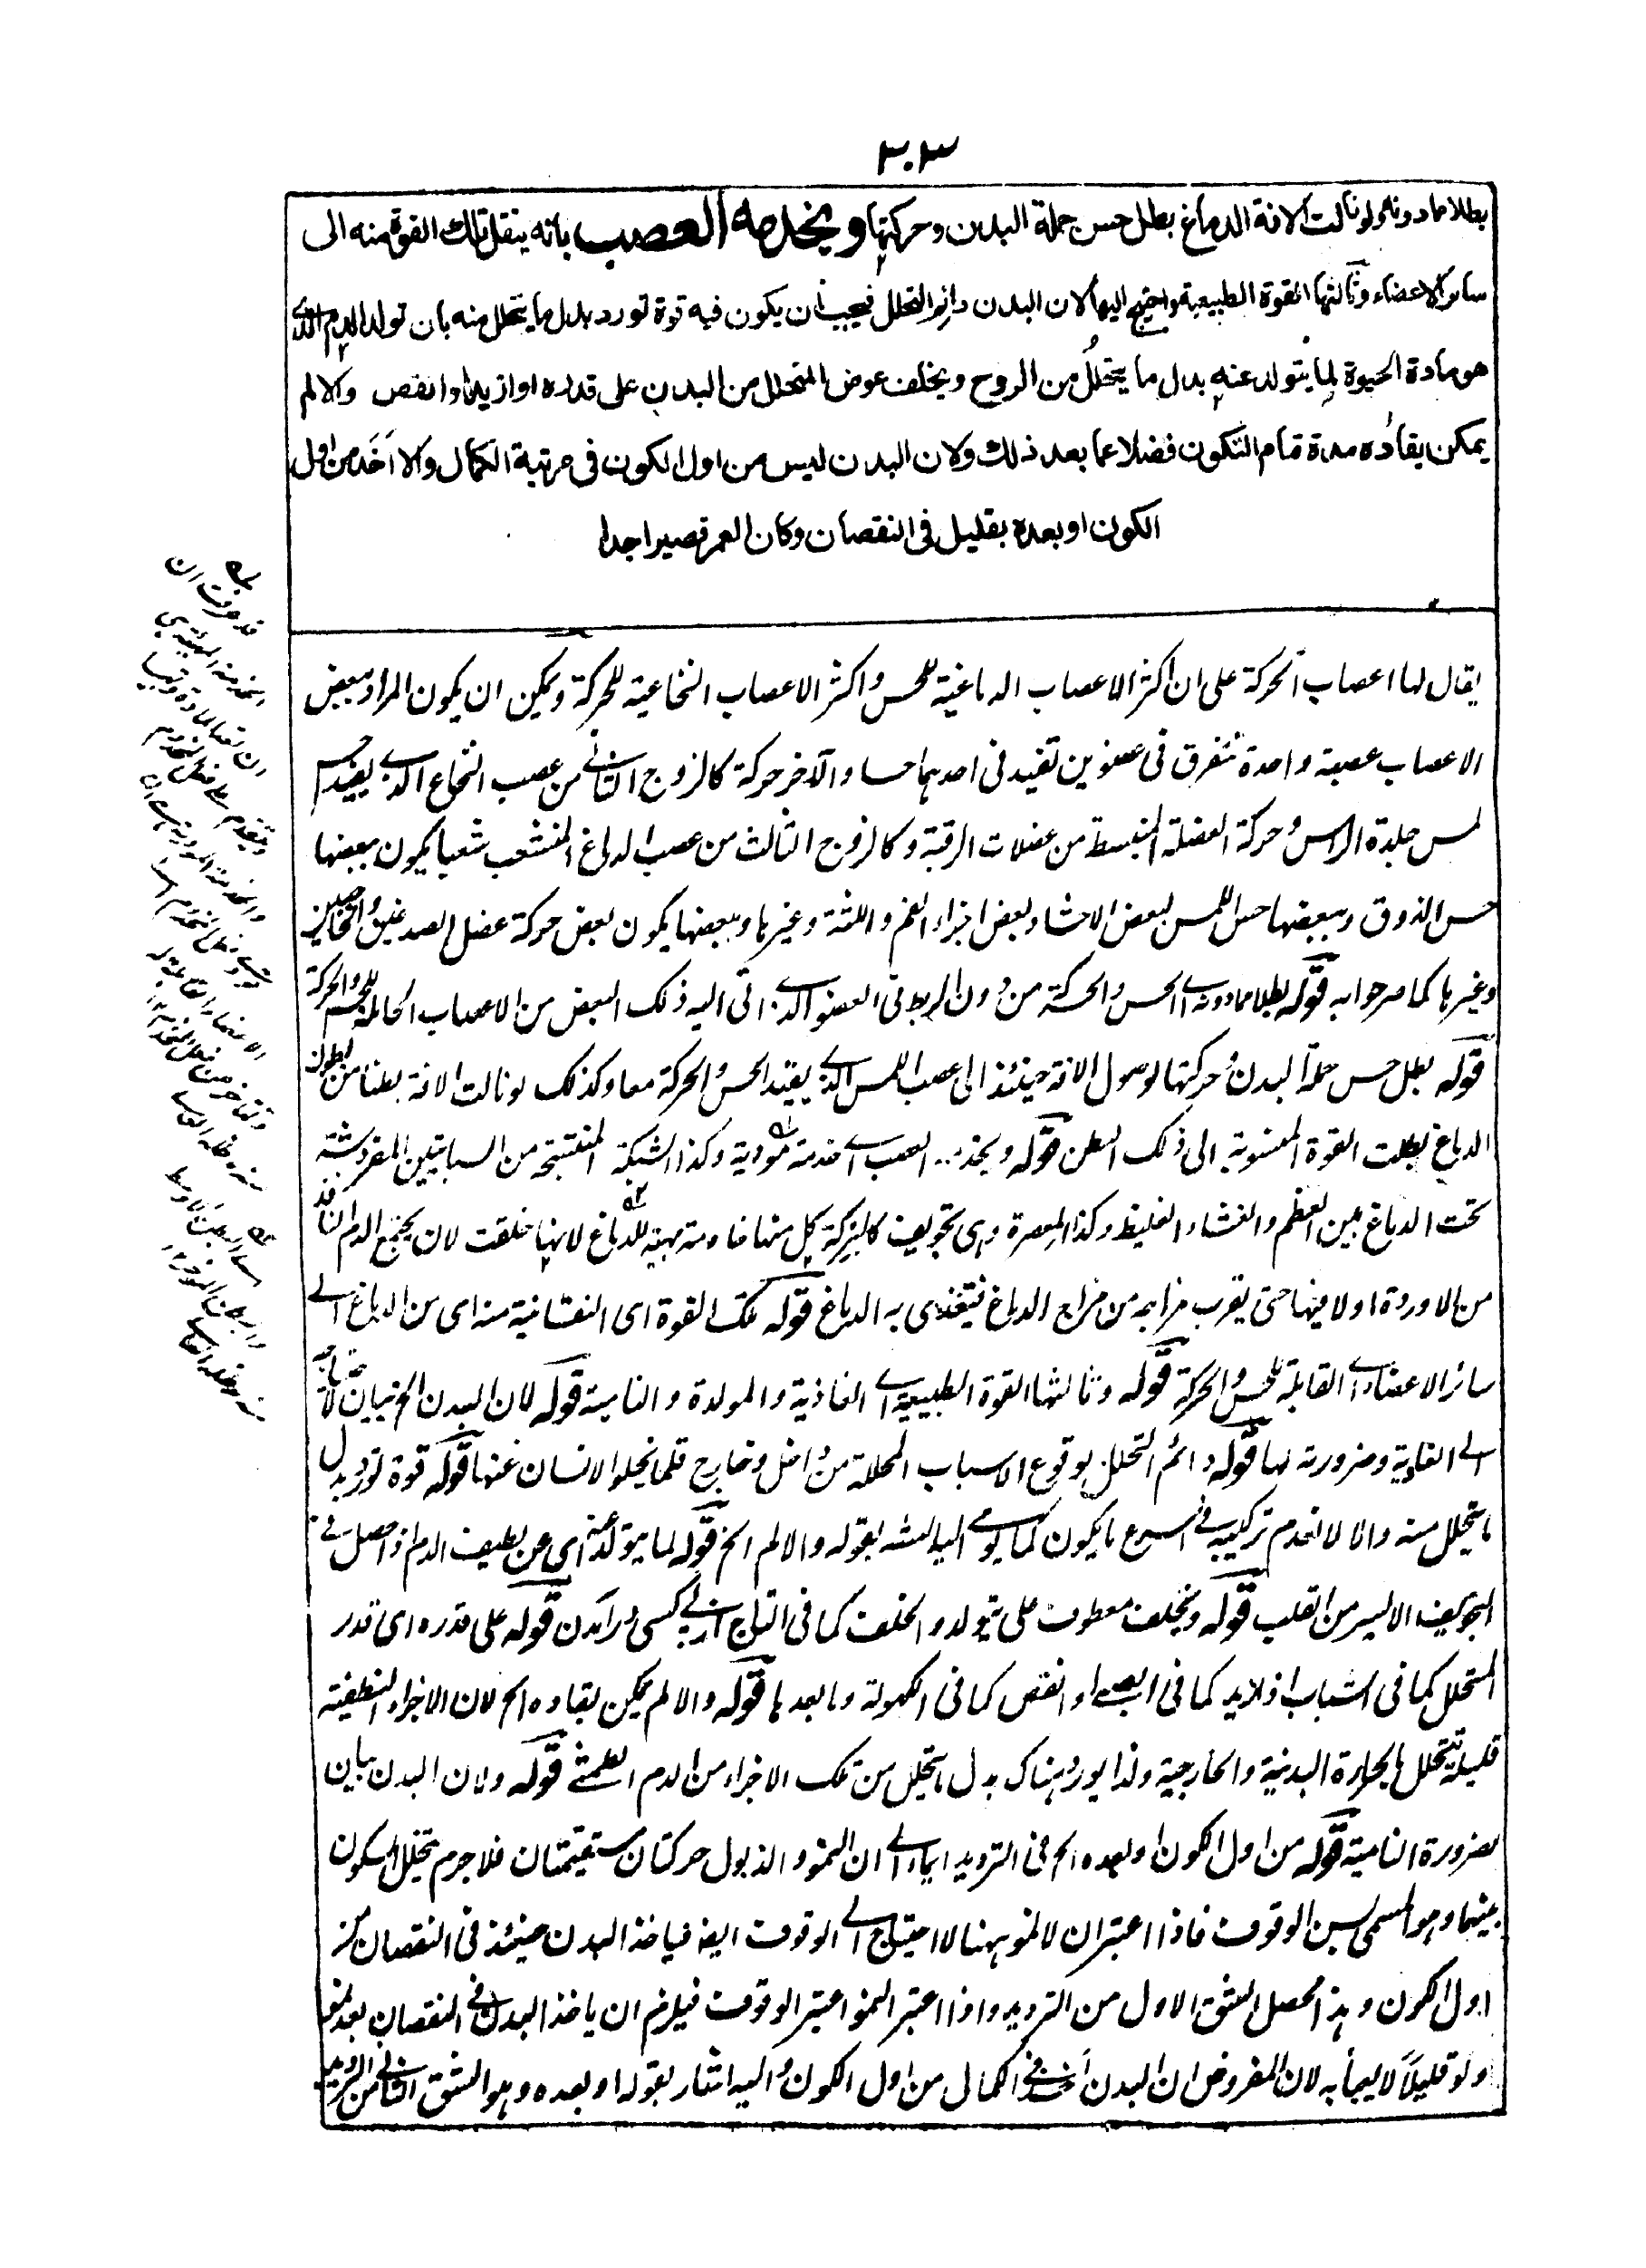 ٣٠٣
بطلا مادونه ولو نالت الافة الدماغ بطل حس جملة البدن وحركتها ويخدمه العصب بانه ينقل تلك القوة منه الى
سائر الاعضاء وثالثها القوة الطبيعية واحتيج اليها لان البدن دائم التحلل فيجب ان يكون فيه قوة تورد بدل ما يتحلل منه بان تولد الدم الذي
هو مادة الحيوة لما يتولد عنه بدل ما يتحلل من الروح ويخلف عوض المتحلل من البدن على قدره او ازيد او انقص والا لم
يمكن بقاؤه مدة تمام التكون فضلا عما بعد ذلك ولان البدن ليس من اول الكون فى مرتبة الكمال والا اخذ من اول
الكون او بعده بقليل فى النقصان وكان العمر قصيرا جدا
يقال لها اعصاب الحركة على ان اكثر الاعصاب الدماغية للحس و اكثر الاعصاب النخاعية للحركة ويمكن ان يكون المراد ببعض
الاعصاب عصبة واحدة تتفرق فى عضوين تفيد فى احدهما حسا و الآخر حركة كالزوج الثانى من عصب النخاع الذى يفيد حس
لمس جلدة الراس و حركة العضلة المنبسطة من عضلات الرقبة و كالزوج الثالث من عصب الدماغ المنشعب شعبا يكون ببعضها
حس الذوق و ببعضها حس اللمس لبعض الاحشاء و بعض اجزاء الفم و اللثة و غيرها و ببعضها يكون بعض حركة عضل الصدغين و الماضغين
وغيرها كما صرحوا به قوله بطلا مادونه اى الحس و الحركة من دون الربط فى العضو الذى اتى اليه ذلك البعض من الاعصاب الحاملة للحس و الحركة
قوله بطل حس جملة البدن و حركتها لوصول الافة حينئذ الى عصب اللمس الذى يفيد الحس و الحركة معا و كذلك لو نالت الافة بطنا من بطون
الدماغ بطلت القوة المنسوبة الى ذلك البطن قوله و يخدمه العصب اى خدمة مؤدية و كذا الشبكة المنتسجة من السباتيين المفروشة
تحت الدماغ بين العظم و الغشاء الغليظ و كذا المعصرة و هى تجويف كالبركة كل منها خادمة مهيئة للدماغ لانها خلقت لان يجتمع الدم النافذ
من الاوردة اولا فيها حتى يقرب مزاجه من مزاج الدماغ فيتغذى به الدماغ قوله تلك القوة اى النفسانية منه اى من الدماغ الى
سائر الاعضاء اى القابلة للحس و الحركة قوله و ثالثها القوة الطبيعية اى الغاذية و المولدة و النامية قوله لان البدن الخ بيان للاحتياج
الى الغاذية و ضرورته لها قوله دائم التحلل لوقوع الاسباب المحللة من داخل و خارج قلما يخلو الانسان عنها قوله قوة تورد بدل
ما يتحلل منه والا لانعدم تركيبه فى اسرع ما يكون كما يومى اليه الشه بقوله والا لم الخ قوله لما يتولد عنه اى عن لطيف الدم اذ احصل فى
التجويف الايسر من القلب قوله و يخلف معطوف على يتولد و الخلف كما فى التاج از پى كسى درآمدن قوله على قدره اى قدر
المتحلل كما فى الشباب او ازيد كما فى الصبى او انقص كما فى الكهولة و ما بعدها قوله والا لم يمكن بقاؤه الخ لان الاجزاء النطفية
قليلة تتحلل بالحرارة البدنية و الخارجية و لذا يورد هناك بدل ما يتحلل من تلك الاجزاء من الدم الطمثى قوله ولان البدن بيان
لضرورة النامية قوله من اول الكون او بعده الخ فى الترديد ايماء الى ان النمو و الذبول حركتان مستقيمتان فلا جرم يتخلل السكون
بينهما و هو المسمى بسن الوقوف فاذا اعتبر ان لا نمو ههنا لا احتياج الى الوقوف ايضا فياخذ البدن حينئذ فى النقصان من
اول الكون و هذا محصل الشق الاول من الترديد و اذا اعتبر النمو اعتبر الوقوف فيلزم ان ياخذ البدن فى النقصان بعد النمو
ولو قليلاً لا يعبأ به لان المفروض ان البدن اخذ فى الكمال من اول الكون و اليه اشار بقوله او بعده و هو الشق الثانى من الترديد